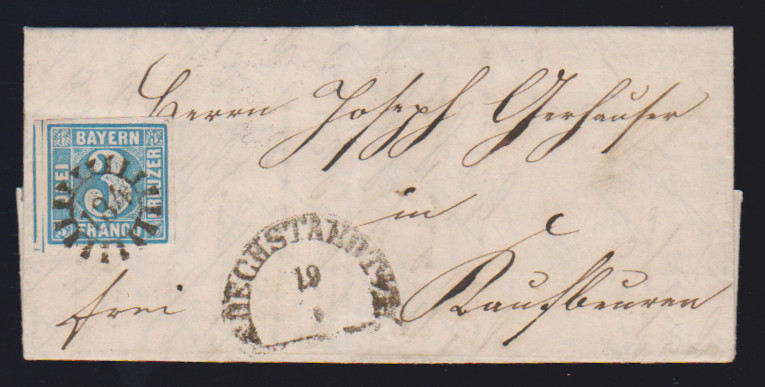 Herrn Joseph Gerhauser
BAYERN
DREI
KREUZER
3
FRANCO
in
19
frei
Kaufbeuren